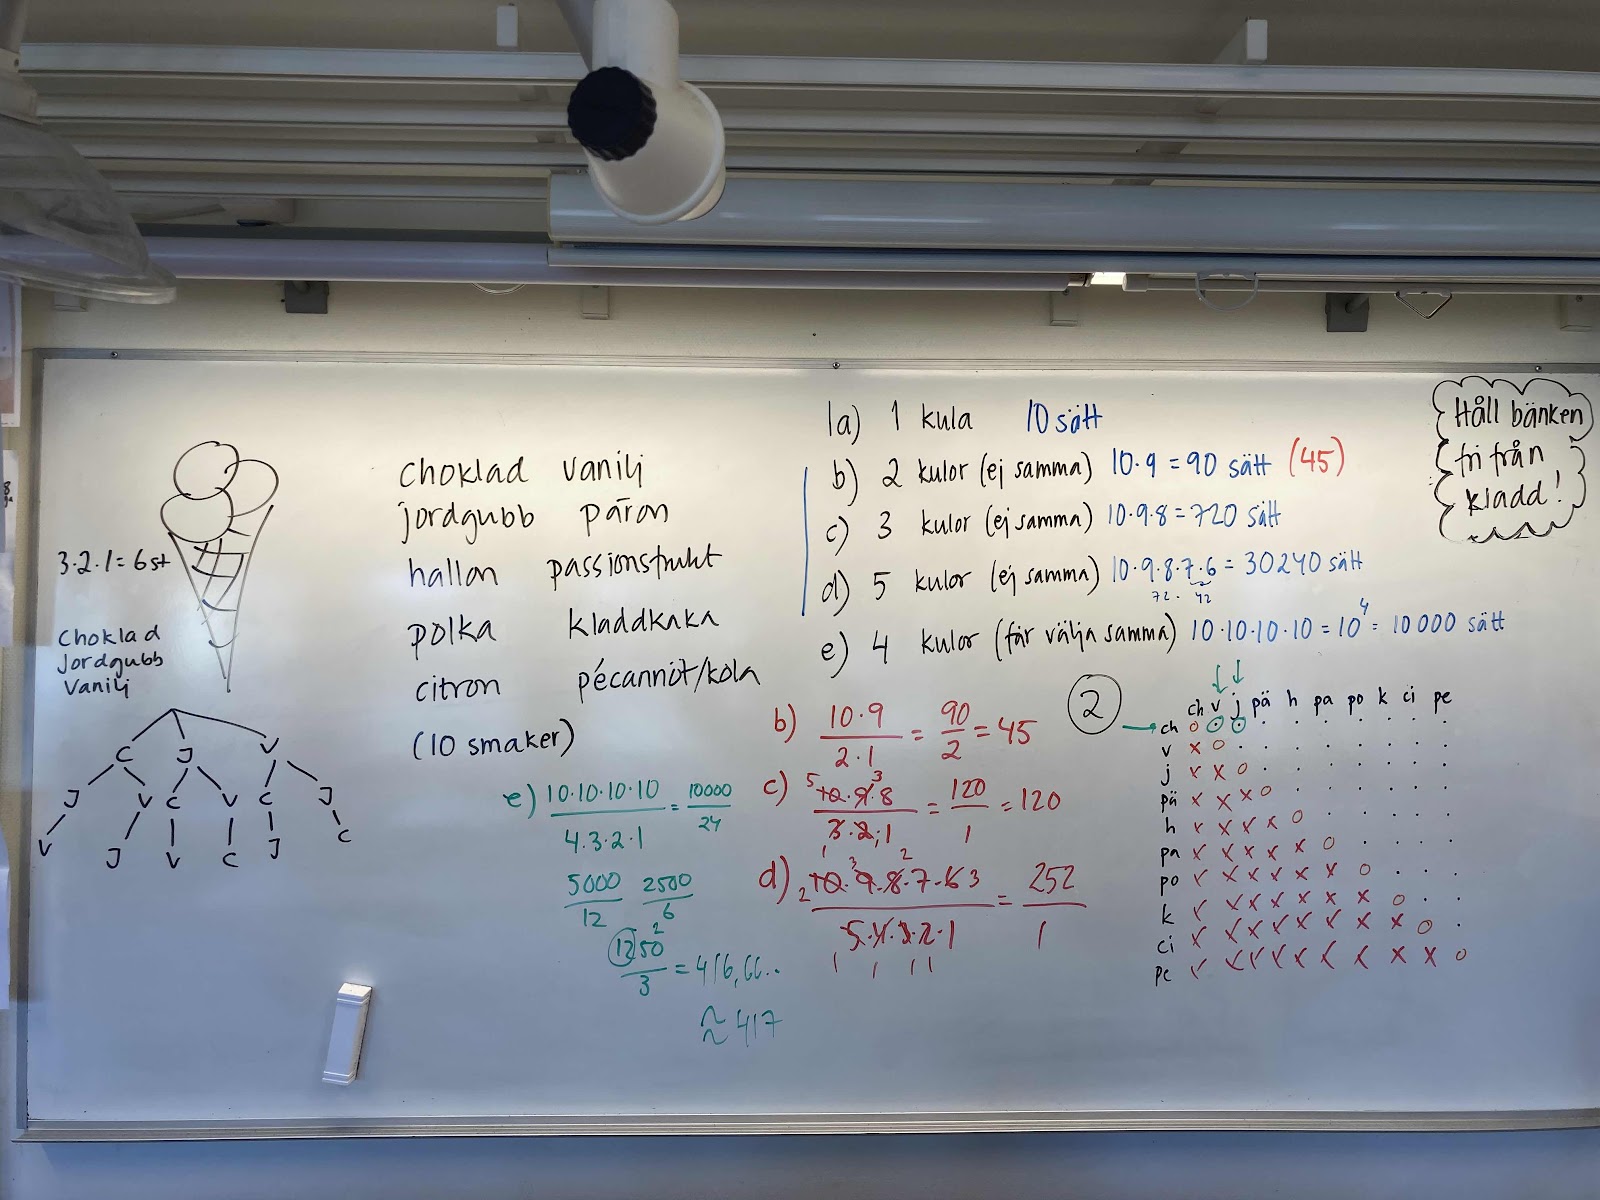 3·2·1=6st
Choklad
Jordgubb
Vanilj
C J V
J V C V C J
V J V C J C
choklad vanilj
jordgubb päron
hallon passionsfrukt
polka kladdkaka
citron pécannöt/kola
(10 smaker)
1a) 1 kula 10 sätt
b) 2 kulor (ej samma) 10·9=90 sätt (45)
c) 3 kulor (ej samma) 10·9·8=720 sätt
d) 5 kulor (ej samma) 10·9·8·7·6=30240 sätt
72· 42
e) 4 kulor (får välja samma) 10·10·10·10=10⁴=10000 sätt
Håll bänken
fri från
kladd!
b) 10·9/2·1 = 90/2 = 45
c) 5 10·9·8 3/3·2·1 = 120/1 = 120
1
d) 2 10·9·8·7·6 3/5·4·3·2·1 = 252/1
3 2
1 1 1 1
e) 10·10·10·10/4·3·2·1 = 10000/24
5000/12 2500/6
1250/3 = 416,66..
2
≈ 417
2
ch v j pä h pa po k ci pe
ch o o o · · · · · · ·
v x o · · · · · · · ·
j x x o · · · · · · ·
pä x x x o · · · · · ·
h x x x x o · · · · ·
pa x x x x x o · · · ·
po x x x x x x o · · ·
k x x x x x x x o · ·
ci x x x x x x x x o ·
pe x x x x x x x x x o